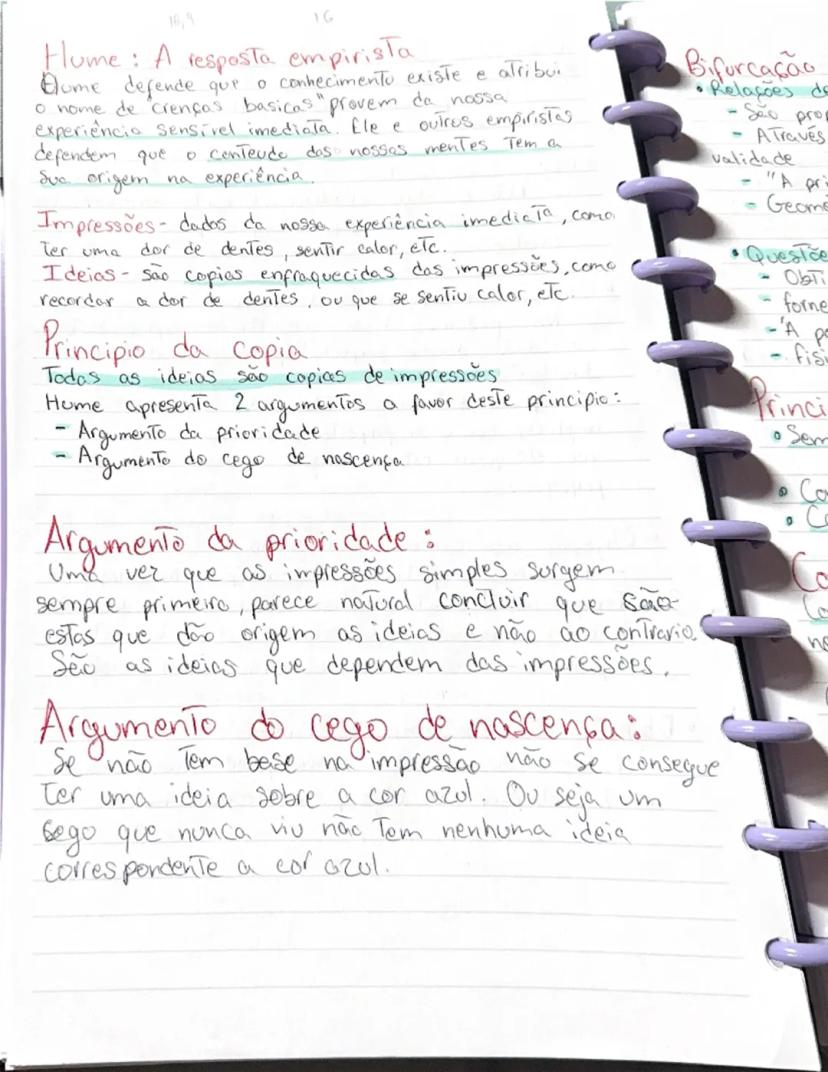 18,9 16
Hume: A resposta empirista
Hume defende que o conhecimento existe e atribui
o nome de "crenças basicas" provem da nossa
experiência sensível imediata. Ele e outros empiristas
defendem que o conteudo das nossas mentes tem a
sua origem na experiência.
Impressões - dados da nossa experiência imediata, como
ter uma dor de dentes, sentir calor, etc.
Ideias - são copias enfraquecidas das impressões, como
recordar a dor de dentes, ou que se sentiu calor, etc.
Principio da copia
Todas as ideias são copias de impressões
Hume apresenta 2 argumentos a favor deste principio:
- Argumento da prioridade
- Argumento do cego de nascença
Argumento da prioridade:
Uma vez que as impressões simples surgem
sempre primeiro, parece natural concluir que são
estas que dão origem as ideias e não ao contrario.
São as ideias que dependem das impressões.
Argumento do cego de nascença:
Se não tem base na impressão não se consegue
ter uma ideia sobre a cor azul. Ou seja um
cego que nunca viu não tem nenhuma ideia
correspondente a cor azul.
Bifurcação
• Relações
- São
- Através
validade
- "A
-
•
-
-
- "A
-
• Sem
•
•